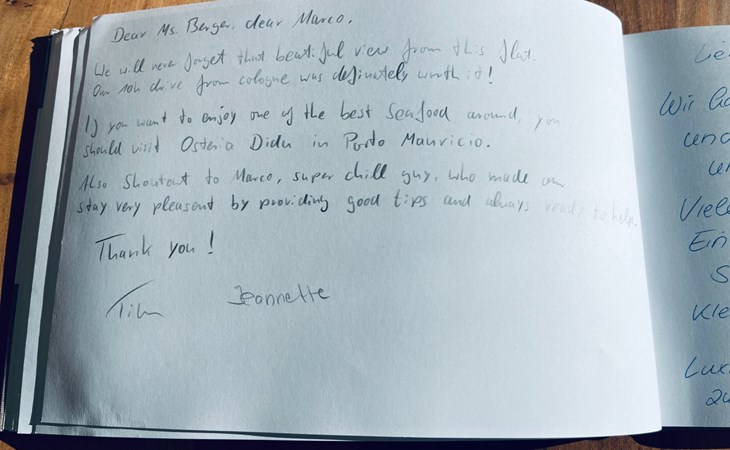 Dear Ms. Berger, dear Marco,
We will never forget that beautiful view from this flat.
Our 10h drive from cologne was definately worth it!
If you want to enjoy one of the best Seafood around, you
should visit Osteria Didu in Porto Mauricio.
Also Shoutout to Marco, super chill guy, who made our
stay very pleasent by providing good tips and always ready to help.
Thank you!
Tim Jeannette
Wir
und
Viele
Ein
S
Kle
Lux